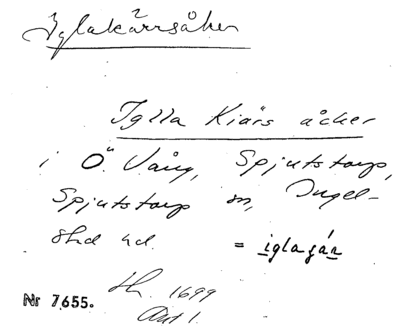 Iglakärrsåker
Iglla Kiärs åcker
i Ö. Vång, Spjutstorp,
Spjutstorp sn, Ingel-
stad hd. = iglaɡár
Nr 7655. LH. 1699
Akt 1.